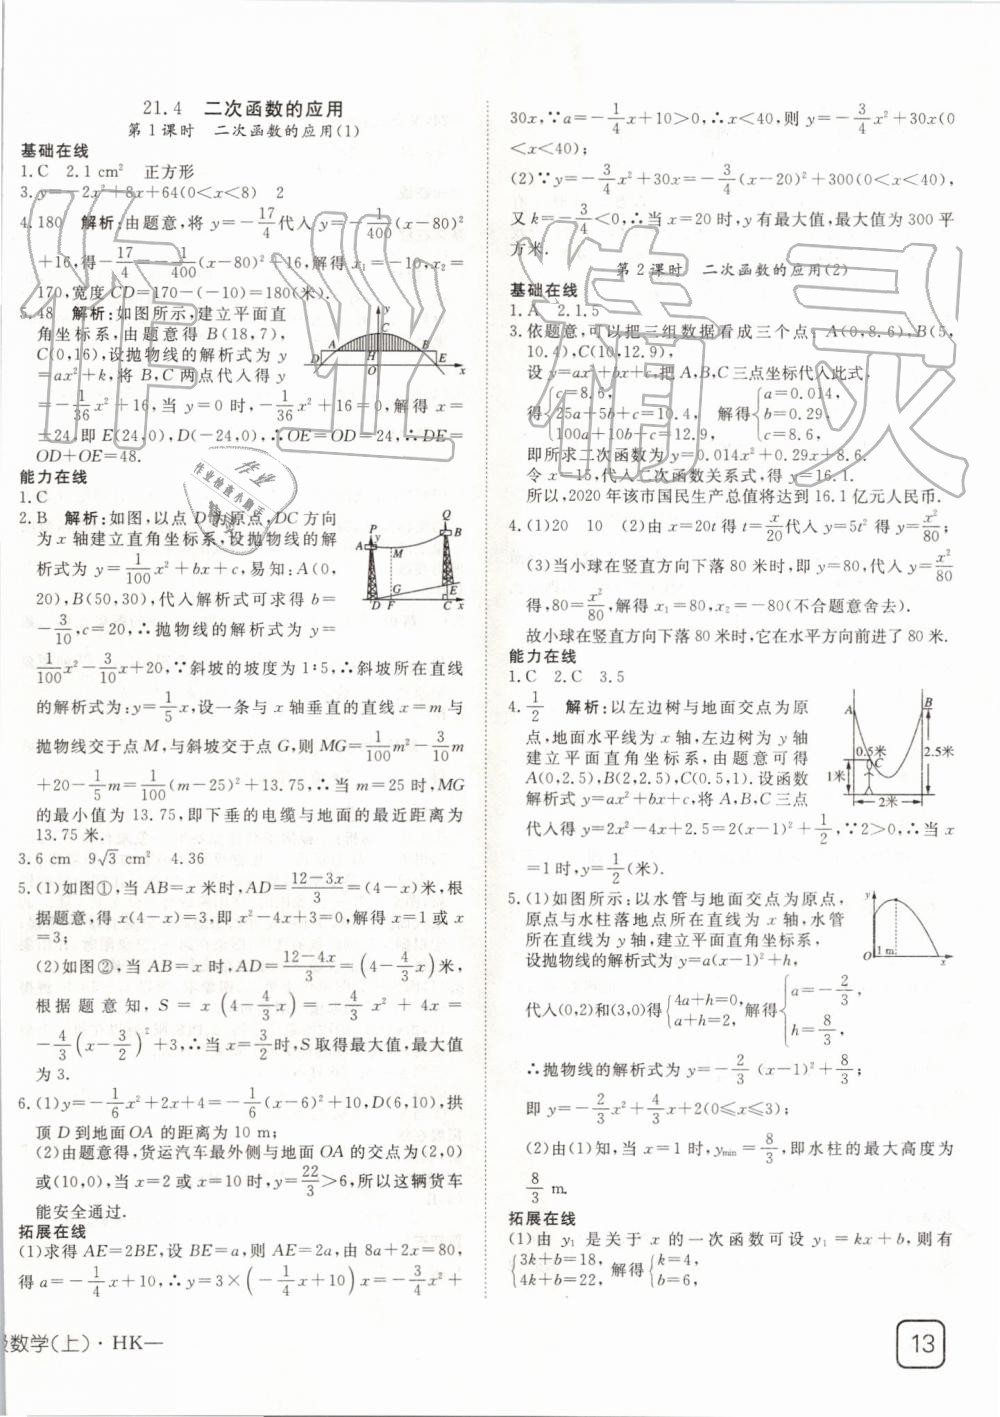 21.4 二次函数的应用
第1课时 二次函数的应用(1)
基础在线
1.C 2.1 cm² 正方形
3.y=-2x²+8x+64(0<x<8) 2
4.180 解析:由题意,将 y=-17/4代入 y=-1/400(x-80)²
+16,得-17/4=-1/400(x-80)²+16,解得 x₁=-10,x₂=
170,宽度 CD=170-(-10)=180(米).
5.48 解析:如图所示,建立平面直
角坐标系,由题意得 B(18,7),
C(0,16),设抛物线的解析式为 y
=ax²+k,将 B,C 两点代入得 y
=-1/36x²+16,当 y=0 时,-1/36x²+16=0,解得 x=
±24,即 E(24,0),D(-24,0),∴OE=OD=24,∴DE=
OD+OE=48.
y
C
D A H B E
O x
能力在线
1.C
2.B 解析:如图,以点 D 为原点,DC 方向
为 x 轴建立直角坐标系,设抛物线的解
析式为 y=1/100x²+bx+c,易知:A(0,
20),B(50,30),代入解析式可求得 b=
-3/10,c=20,∴抛物线的解析式为 y=
1/100x²-3/10x+20,∵斜坡的坡度为 1:5,∴斜坡所在直线
的解析式为:y=1/5x,设一条与 x 轴垂直的直线 x=m 与
抛物线交于点 M,与斜坡交于点 G,则 MG=1/100m²-3/10m
+20-1/5m=1/100(m-25)²+13.75,∴当 m=25 时,MG
的最小值为 13.75,即下垂的电缆与地面的最近距离为
13.75 米.
Q
P B
A M
G E
D F C x
3.6 cm 9√3 cm² 4.36
5.(1)如图①,当 AB=x 米时,AD=(12-3x)/3=(4-x)米,根
据题意,得 x(4-x)=3,即 x²-4x+3=0,解得 x=1 或 x
=3;
(2)如图②,当 AB=x 时,AD=(12-4x)/3=(4-4/3x)米,
根据题意知,S=x(4-4/3x)=-4/3x²+4x=
-4/3(x-3/2)²+3,∴当 x=3/2时,S取得最大值,最大值
为 3.
6.(1)y=-1/6x²+2x+4=-1/6(x-6)²+10,D(6,10),拱
顶 D 到地面 OA 的距离为 10 m;
(2)由题意得,货运汽车最外侧与地面 OA 的交点为(2,0)
或(10,0),当 x=2 或 x=10 时,y=22/3>6,所以这辆货车
能安全通过.
拓展在线
(1)求得 AE=2BE,设 BE=a,则 AE=2a,由 8a+2x=80,
得 a=-1/4x+10,∴y=3×(-1/4x+10)x=-3/4x²+
级数学(上)·HK—
30x,∵a=-1/4x+10>0,∴x<40,则 y=-3/4x²+30x(0
<x<40);
(2)∵y=-3/4x²+30x=-3/4(x-20)²+300(0<x<40),
又 k=-3/4<0,∴当 x=20 时,y 有最大值,最大值为 300 平
方米.
第2课时 二次函数的应用(2)
基础在线
1.A 2.1.5
3.依题意,可以把三组数据看成三个点:A(0,8.6),B(5,
10.4),C(10,12.9),
设 y=ax²+bx+c,把 A,B,C 三点坐标代入此式,
得{c=8.6, 25a+5b+c=10.4, 100a+10b+c=12.9, 解得{a=0.014, b=0.29, c=8.6,
即所求二次函数为 y=0.014x²+0.29x+8.6.
令 x=15,代入二次函数关系式,得 y=16.1.
所以,2020 年该市国民生产总值将达到 16.1 亿元人民币.
4.(1)20 10 (2)由 x=20t 得 t=x/20代入 y=5t² 得 y=x²/80;
(3)当小球在竖直方向下落 80 米时,即 y=80,代入 y=x²/80
得,80=x²/80,解得 x₁=80,x₂=-80(不合题意舍去).
故小球在竖直方向下落 80 米时,它在水平方向前进了 80 米.
能力在线
1.C 2.C 3.5
4.1/2 解析:以左边树与地面交点为原
点,地面水平线为 x 轴,左边树为 y 轴
建立平面直角坐标系,由题意可得
A(0,2.5),B(2,2.5),C(0.5,1).设函数
解析式为 y=ax²+bx+c,将 A,B,C 三点
代入得 y=2x²-4x+2.5=2(x-1)²+1/2,∵2>0,∴当 x
=1 时,y=1/2(米).
A B
0.5米
C 2.5米
1米
2米
5.(1)如图所示:以水管与地面交点为原点,
原点与水柱落地点所在直线为 x 轴,水管
所在直线为 y 轴,建立平面直角坐标系,
设抛物线的解析式为 y=a(x-1)²+h,
代入(0,2)和(3,0)得{4a+h=0, a+h=2, 解得{a=-2/3, h=8/3,
∴抛物线的解析式为 y=-2/3(x-1)²+8/3;
即 y=-2/3x²+4/3x+2(0≤x≤3);
(2)由(1)知,当 x=1 时,yₘᵢₙ=8/3,即水柱的最大高度为
8/3 m.
y
1 m
O x
拓展在线
(1)由 y₁ 是关于 x 的一次函数可设 y₁=kx+b,则有
{3k+b=18, 4k+b=22, 解得{k=4, b=6,
13
作业精灵
作业
作业检查小助手